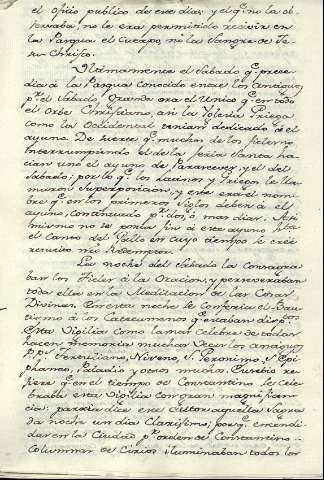 el oficio publico de ese dia; y el q.e no la ob-
servaba no le era permitido recivir en
la Pasqua el Cuerpo, ni la Sangre de Je-
su-Christo.
Ultimamente el Sabado q.e prece-
dia à la Pasqua conocido entre los Antiguos
p.r el Sabado Grande era el Unico q.e en todo
el Orbe Christiano, asi la Yglesia Griega
como la Occidental tenian dedicado à el
ayuno. De suerte q.e muchos de los fieles no
interrumpiendo el de la feria Santa ha-
cian uno el ayuno de Parasceve, y el del
Sabado; por lo q.e los Latinos y Griegos le lla-
maron Superposicion, y este era el nom-
bre q.e en los primeros siglos deben à el
ayuno, continuado p.r dos, ò mas dias. Asi-
mismo no se ponia fin à este ayuno hta
el Canto del Gallo en cuyo tiempo se cree
resucito nro Redemptor.
La noche del Sabado la Consagra-
ban los Fieles à la Oracion, y perseveraban
toda ella en la Meditacion de las Cosas
Divinas. Con esta noche se conferia el Bau-
tismo à los Catecumenos q.e estaban dispos.tos
Esta Vigilia como la mas celebre de todas
hacen memoria muchas veces los antiguos
P.P. Tertuliano, Niseno, S. Geronimo, S. Epi-
phaneo, Paladio y otros muchos. Eusebio re-
fiere q.e en el tiempo de Constantino se cele-
braba esta Vigilia con gran magnificen-
cia: parecia dice ese Autor aquella Sagra-
da noche un dia Clarisimo; porq.e encendi-
das en la Ciudad p.r orden de Constantino
Columnas de Cirios iluminaban todos los